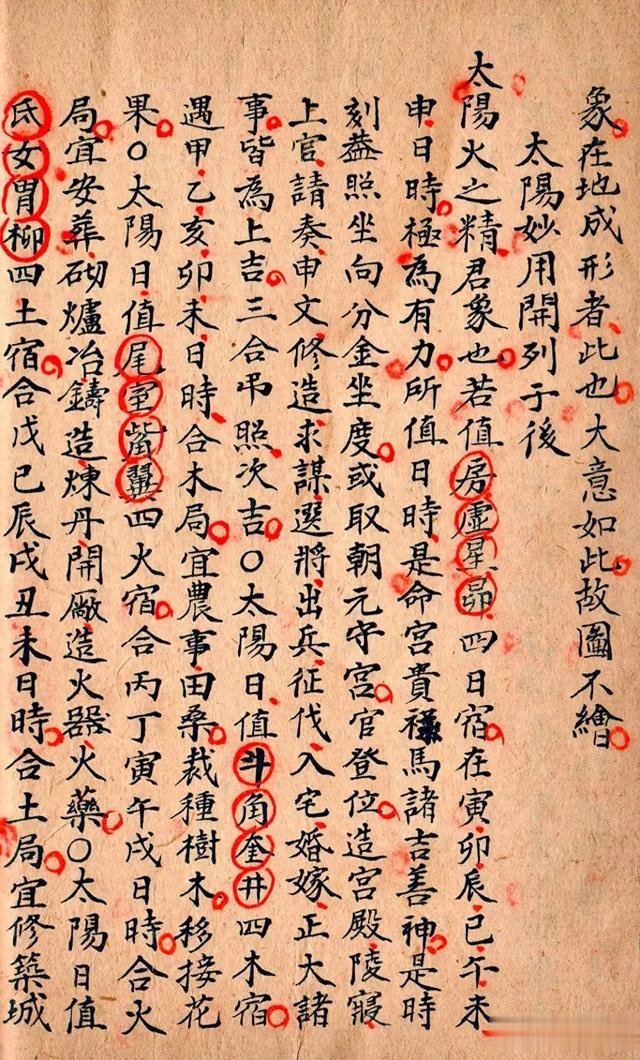 象在地成形者此也大意如此故圖不繪
太陽妙用開列于後
太陽火之精君象也若值房虛星昴四日宿在寅卯辰巳午未
申日時極為有力所值日時是命宮貴祿馬諸吉善神是時
刻葢照坐向分金坐度或取朝元守宮官登位造宮殿陵寢
上官請奏申文修造求謀選將出兵征伐入宅婚嫁正大諸
事皆為上吉三合弔照次吉○太陽日值斗角奎井四木宿
遇甲乙亥卯未日時合木局宜農事田桑裁種樹木移接花
果○太陽日值尾室觜翼四火宿合丙丁寅午戌日時合火
局宜安葬砌爐冶鑄造煉丹開廠造火器火藥○太陽日值
氐女胃柳四土宿合戊己辰戌丑未日時合土局宜修築城